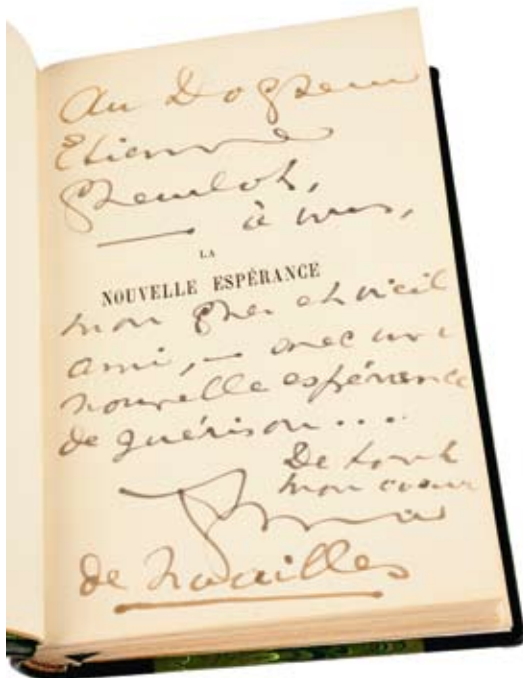 Au Docteur
Etienne
à vous,
LA
NOUVELLE ESPÉRANCE
mon cher et vieil
ami, — avec une
nouvelle espérance
de guérison...
De tout
mon cœur
Anna
de Noailles